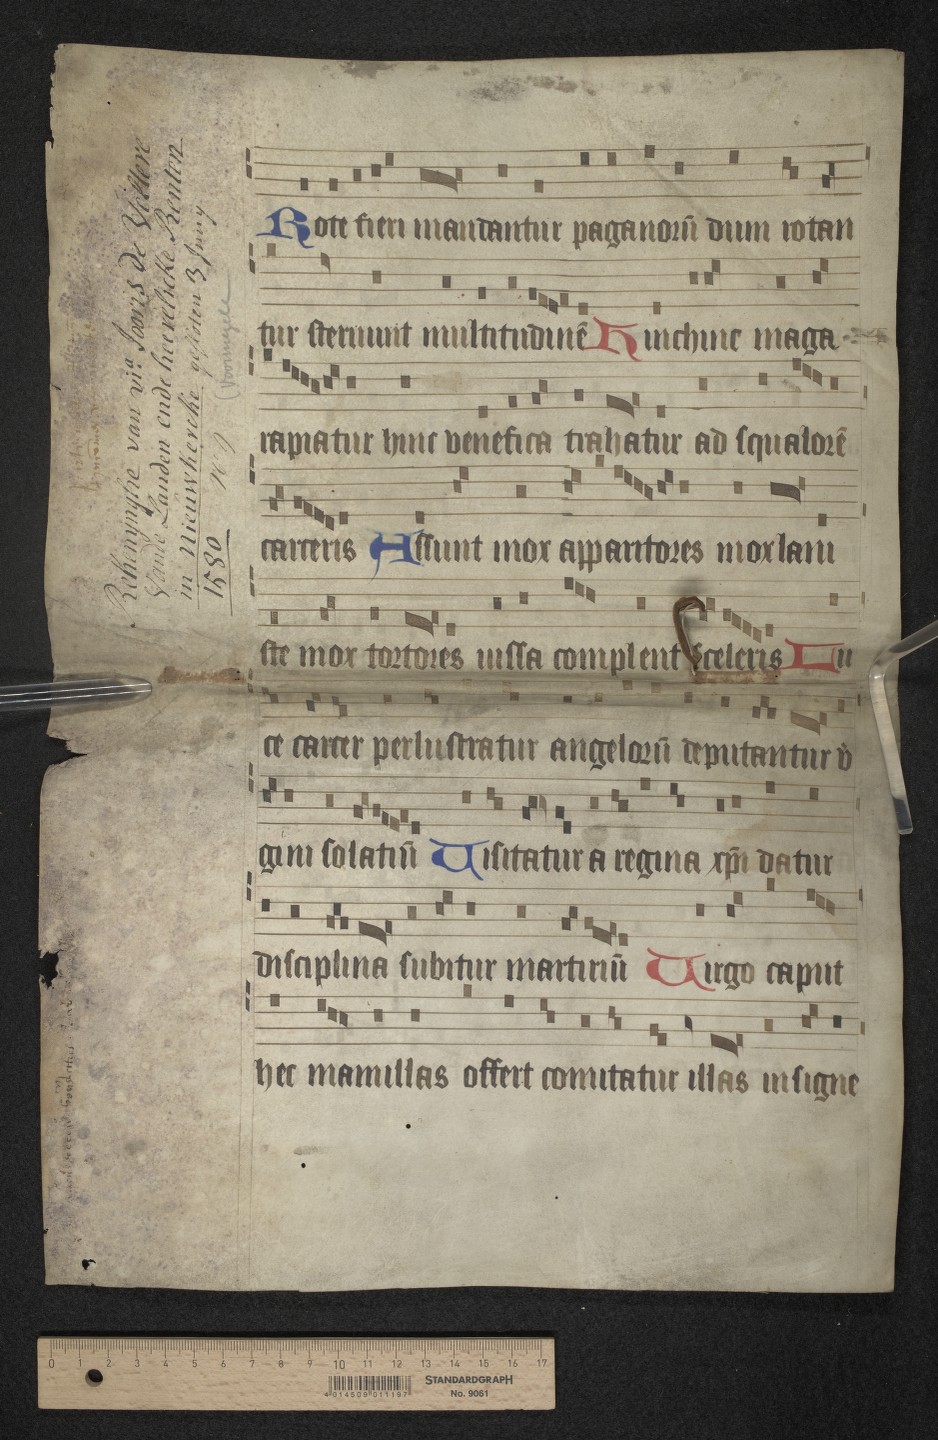 Rote fieri mandantur paganorū dum rotan
tur sternunt multitudinē Hinc hinc maga
rapiatur hinc venefica trahatur ad squalorē
carceris Assunt mox apparitores mox lani
ste mox tortores iussa complent sceleris Lu
ce carcer perlustratur angelorū deputantur v̓
gini solatiū Uisitatur a regina xp̄i datur
disciplina subitur martiriū Uirgo caput
hec mamillas offert comitatur illas insigne
Rekenynghe van
vande Landen ende heerelicke Renten
in Nieuwkercke 3 Juny
1580
0 1 2 3 4 5 6 7 8 9 10 11 12 13 14 15 16 17
STANDARDGRAPH
No. 9061
4 014509 011197